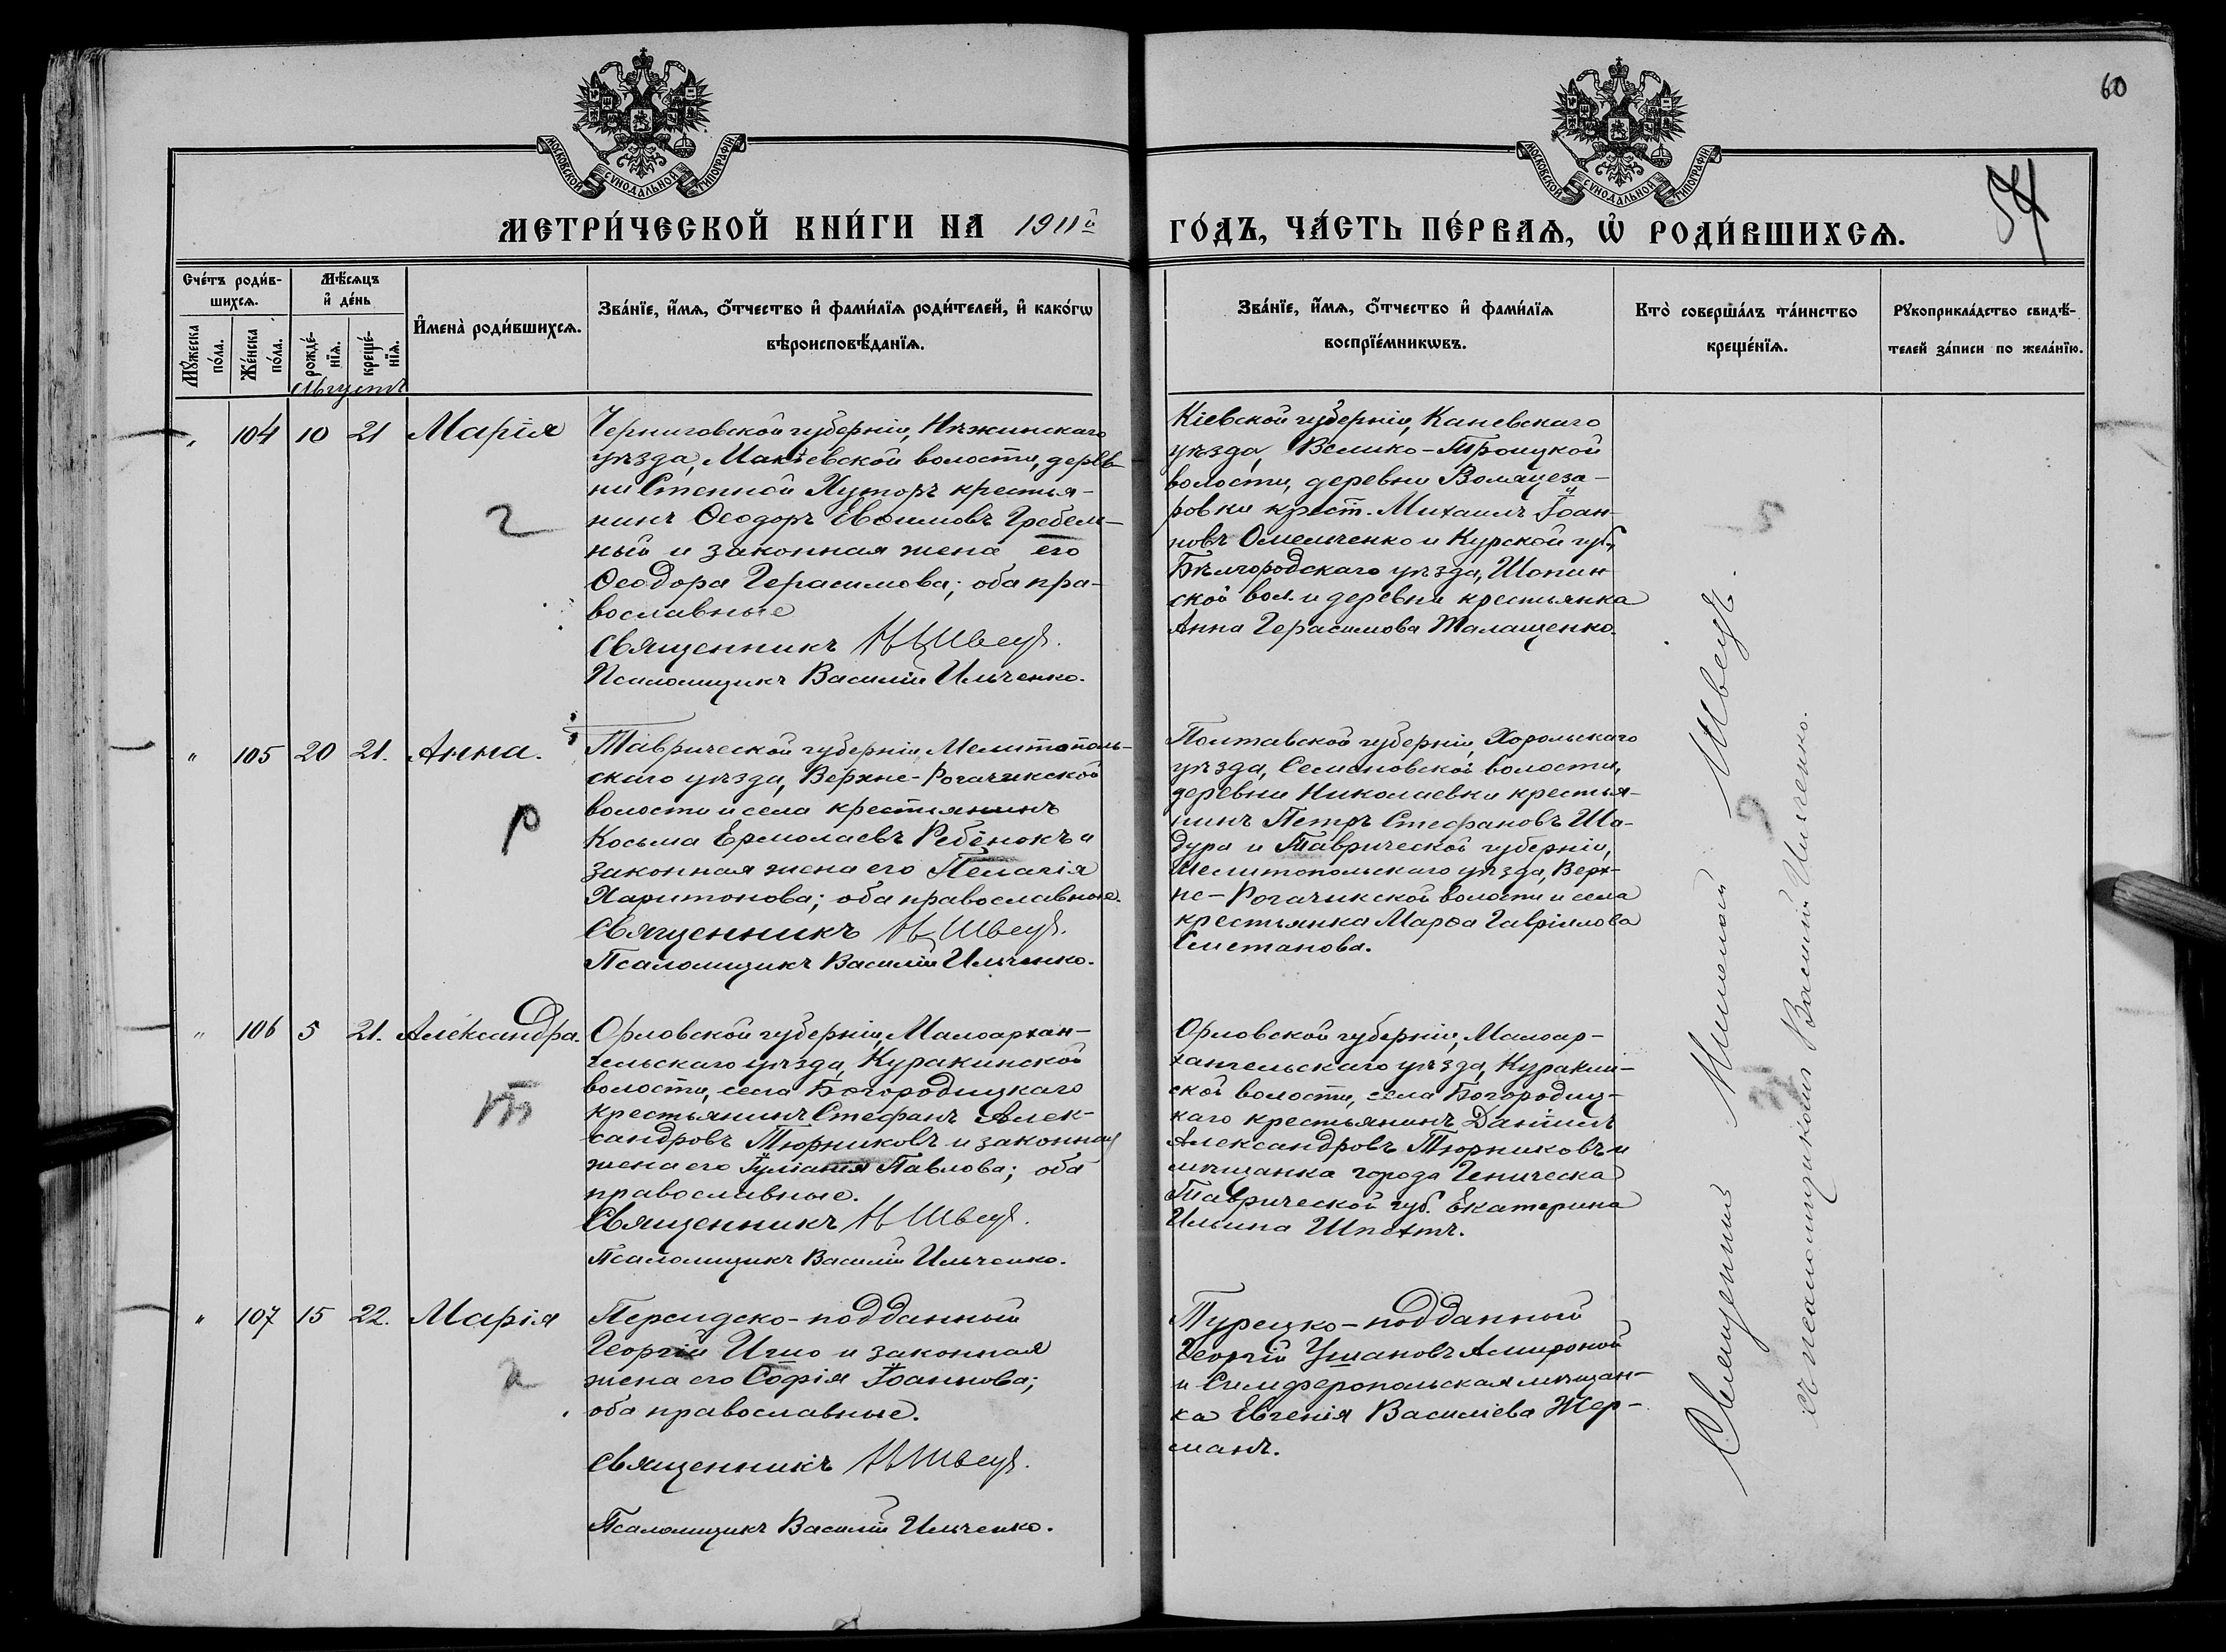 60
54
МОСКОВСКОЙ СУНОДАЛЬНОЙ ТИПОГРАФІИ.
МОСКОВСКОЙ СУНОДАЛЬНОЙ ТИПОГРАФІИ.
МЕТРИ́ЧЕСКОЙ КНИ́ГИ НА 1911й ГО́ДЪ, ЧА́СТЬ ПЕ́РВАѦ, Ѡ҆ РОДИ́ВШИХСѦ.
Сче́тъ роди́в-
шихсѧ.
Мꙋ́жеска
по́ла.
Же́нска
по́ла.
Мѣ́сѧцъ
и҆ де́нь
рожде́-
нїѧ.
креще́-
нїѧ.
И҆мена̀ роди́вшихсѧ.
Зва́нїе, и҆́мѧ, ѻ҆́тчество и҆ фами́лїѧ роди́телей, и҆ како́гѡ
вѣроисповѣ́данїѧ.
Зва́нїе, и҆́мѧ, ѻ҆́тчество и҆ фами́лїѧ
воспрїе́мникѡвъ.
Кто̀ соверша́лъ та́инство
креще́нїѧ.
Рꙋкоприкла́дство свидѣ́-
телей за́писи по жела́нїю.
Августъ
„ 104 10 21 Марія
Черниговской губерніи, Нѣжинскаго
уѣзда, Макѣевской волости, дерев-
ни Степной Хуторъ крестья-
нинъ Ѳеодоръ Евѳимовъ Гребель-
ный и законная жена его
Ѳеодора Герасимова; оба пра-
вославные
Священникъ Н Швецъ.
Псаломщикъ Василій Ильченко.
Кіевской губерніи, Каневскаго
уѣзда, Велико-Троицкой
волости, деревни
ровки крест. Михаилъ Іоан-
новъ Омельченко и Курской губ.,
Бѣлгородскаго уѣзда, Шопин-
ской вол. и деревни крестьянка
Анна Герасимова Малащенко.
г
„ 105 20 21. Анна.
Таврической губерніи Мелитополь-
скаго уѣзда, Верхне-Рогачикской
волости и села крестьянинъ
Косьма Ермолаевъ Ребёнокъ и
законная жена его Пелагія
Харитонова; оба православные.
Священникъ Н Швецъ.
Псаломщикъ Василій Ильченко.
Полтавской губерніи, Хорольскаго
уѣзда, Семеновской волости,
деревни Николаевки крестья-
нинъ Петръ Стефановъ Ша-
дура и Таврической губерніи,
Мелитопольскаго уѣзда, Верх-
не-Рогачикской волости и села
крестьянка Марѳа Гавріилова
Сметанова.
р
„ 106 5 21. Александра.
Орловской губерніи, Малоархан-
гельскаго уѣзда, Куракинской
волости, села Богородицкаго
крестьянинъ Стефанъ Алек-
сандровъ Тюрниковъ и законная
жена его Іуліанія Павлова; оба
православные.
Священникъ Н Швецъ.
Псаломщикъ Василій Ильченко.
Орловской губерніи, Малоар-
хангельскаго уѣзда, Куракин-
ской волости, села Богородиц-
каго крестьянинъ Даніилъ
Александровъ Тюрниковъ и
мѣщанка города Геническа
Таврической губ. Екатерина
Ильина Шпехтъ.
т
„ 107 15 22. Марія
Персидско-подданный
Георгій Игио и законная
жена его Софія Іоаннова;
оба православные.
Священникъ Н Швецъ.
Псаломщикъ Василій Ильченко.
Турецко-подданный
Георгій Умановъ Амироной
и Симферопольская мѣщан-
ка Евгенія Василіева Жер-
манъ.
Священникъ Николай Швецъ.
съ псаломщикомъ Василій Ильченко.